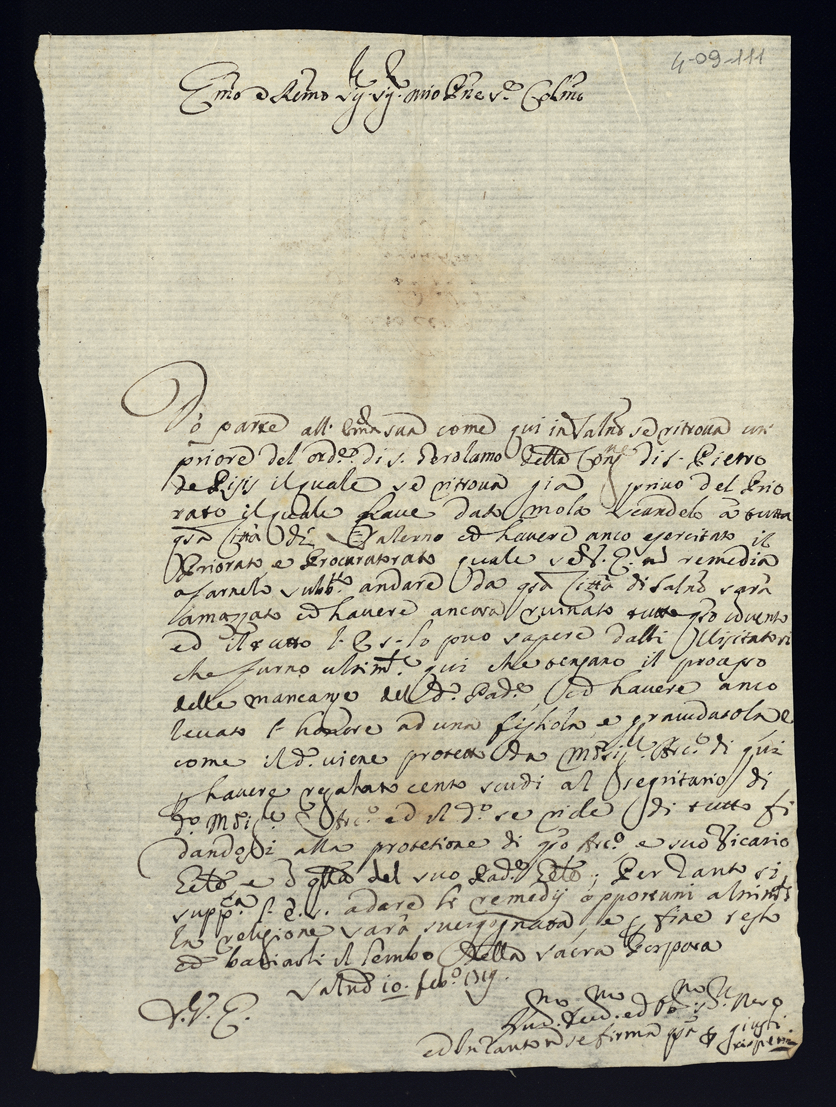 4-09-111
Em̃o e Rem̃o Sig. Sig. mio Pñe e Colm̃o
Do parte all' Em̃a sua come qui in Salño se ritrova un
priore del ord.e di S. Gerolamo della Cong.ne di S. Pietro
de Pisis il quale se ritrova già privo del Prio
rato il quale have dato molo scandelo à tutta
q̃sa Città di Salerno ed havere anco esercitato il
Priorato e Procuratorato quale se V. E. nõ remedia
a farnelo subb.to andare da q̃sa Città di Salño sarà
amazzato ed havere ancora ruinato tutto q̃so covento
ed il tutto V. E. S. lo puo sapere dalli Visitatori
che furno ultim.te qui che tengano il procasso
delle mancanze del d.o Pad.e ed havere anco
levato l'honore ad una figliola, e gravidatola e
come il d.o viene protetto da Mõsig.r Arc.o di qui
p havere regalato cento scudi al Segritario di
d.o Mõsi.r Arc.o ed il d.o se ride di tutto fi
dandosi alla protetione di q̃so Arc.o e suo Vicario
e del suo Pad.e Per Tanto si
supp.ca V. E. S. adare le remedij opportuni altrim.te
la religione sarà svergognata e p fine resto
ed baciarli il lembo della sacra Porpora
Salño 10 feb.o 1719.
D. V. E.
ed Intanto nõ se firma p̃